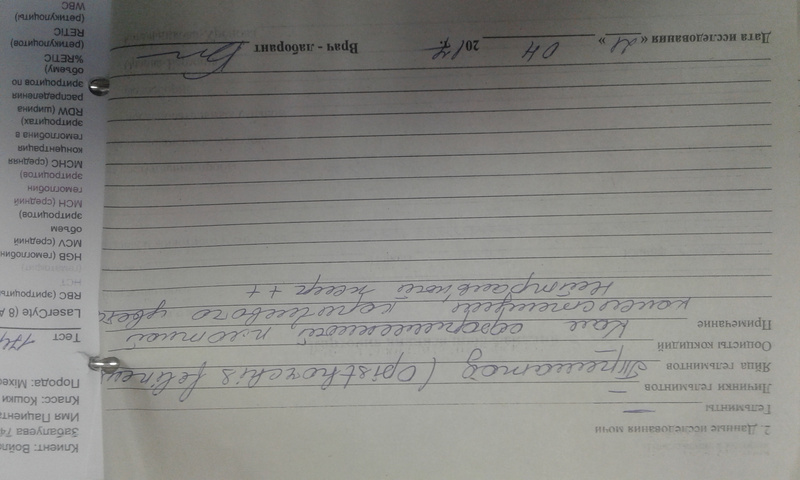 Клиент: Войл
Забалуева 74
Имя Пациента
Класс: Кошки
Порода: Mixe
Тест
LaserCyte (8 А
RBC (эритроциты
HGB (гемоглобин
MCV (средний
объем
эритроцитов)
MCH (средний
гемоглобин
эритроцитов)
MCHC (средняя
концентрация
гемоглобина в
эритроцитах)
RDW (ширина
распределения
эритроцитов по
объему)
%RETIC
(ретикулоцитов)
RETIC
(ретикулоциты)
WBC
2. Данные исследования мочи
Гельминты –
Личинки гельминтов –
Яйца гельминтов Трематод (Opisthorchis felineus
Ооцисты кокцидий –
Примечание Кал оформленный плотной
консистенции коричневого цвета
Нейтральный жир ++
Дата исследования « 21 » 04 2017 г. Врач - лаборант